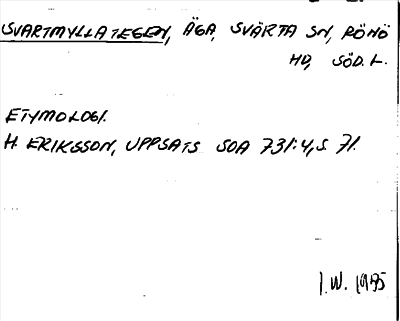 SVARTMYLLATEGEN, ÄGA, SVÄRTA SN, RÖNÖ
HD, SÖD. L.
ETYMOLOGI.
H. ERIKSSON, UPPSATS SOA 731:4, S 71.
I.W. 1985